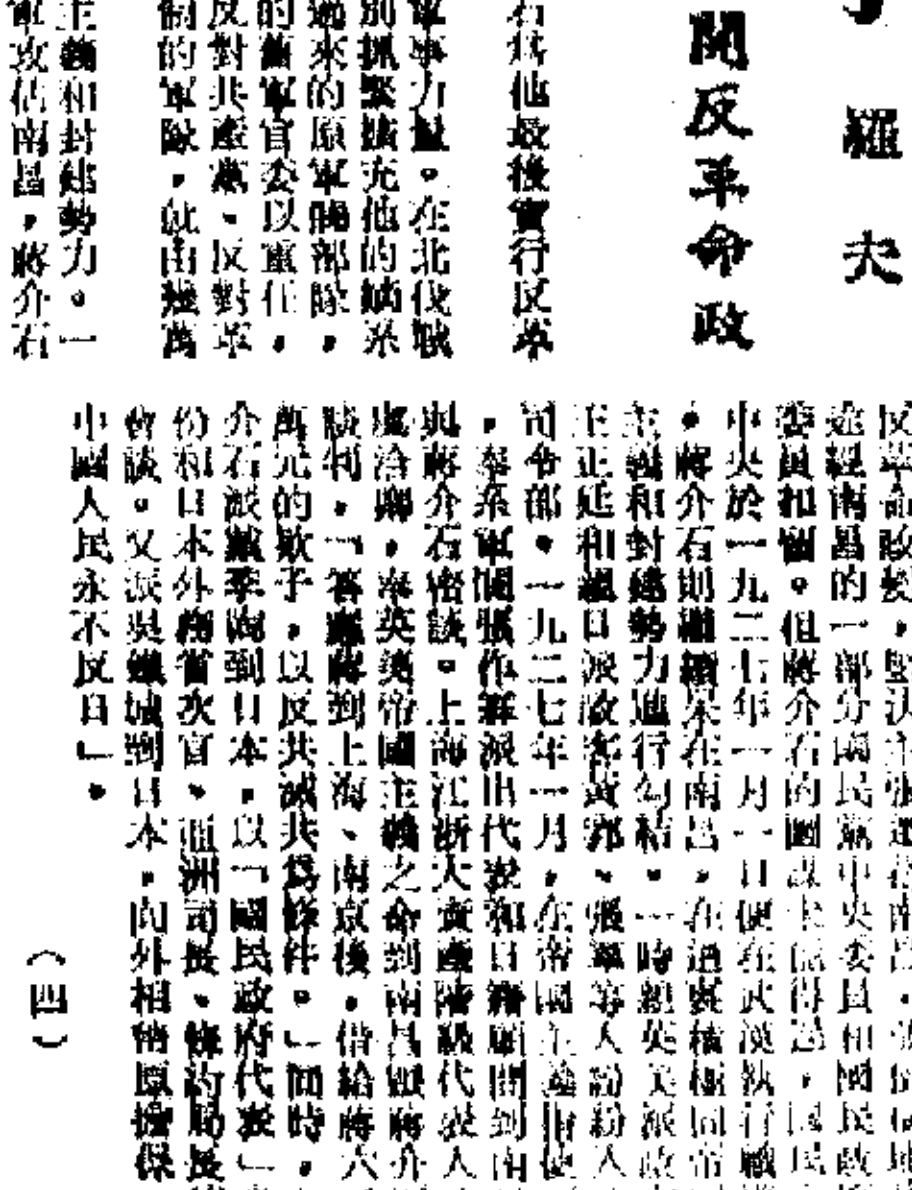 羅夫
開反革命政
石爲他最後實行反革
軍事力量。在北伐戰
別抓緊擴充他的嫡系
過來的原軍閥部隊，
的舊軍官委以重任，
反對共產黨、反對革
制的軍隊，就由幾萬
主義和封建勢力。一
軍攻佔南昌，蔣介石
反革命政變，堅決主張遷都南昌，
途經南昌的一部分國民黨中央委員和國民政
委員扣留。但蔣介石的圖謀未能得逞，國民
中央於一九二七年一月一日便在武漢執行職
。蔣介石則繼續呆在南昌，在過與積極同帝
主義和封建勢力進行勾結。一時親英美派政
王正廷和親日派政客黃郛、張羣等人紛紛入
司令部。一九二七年一月，在帝國主義指使
，奉系軍閥張作霖派出代表和日籍顧問到南
與蔣介石密談。上海江浙大資產階級代表人
虞洽卿，奉英美帝國主義之命到南昌跟蔣介
談判，「答應蔣到上海、南京後，借給蔣六
萬元的款子，以反共滅共爲條件。」同時，
介石派戴季陶到日本，以「國民政府代表」
份和日本外務省次官、亞洲司長、條約局長
會談。又派吳鐵城到日本，向外相幣原擔保
中國人民永不反日」。
（四）